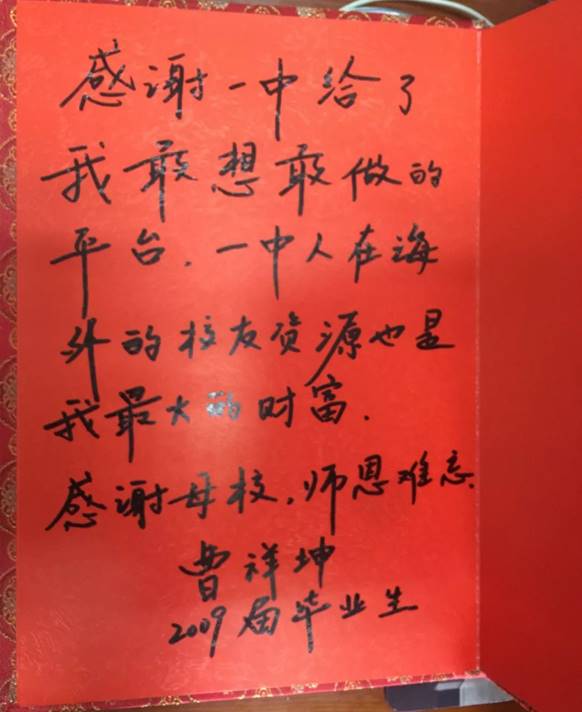 感谢一中给了
我敢想敢做的
平台.一中人在海
外的校友资源也是
我最大的财富.
感谢母校.师恩难忘.
曹祥坤
2009届毕业生